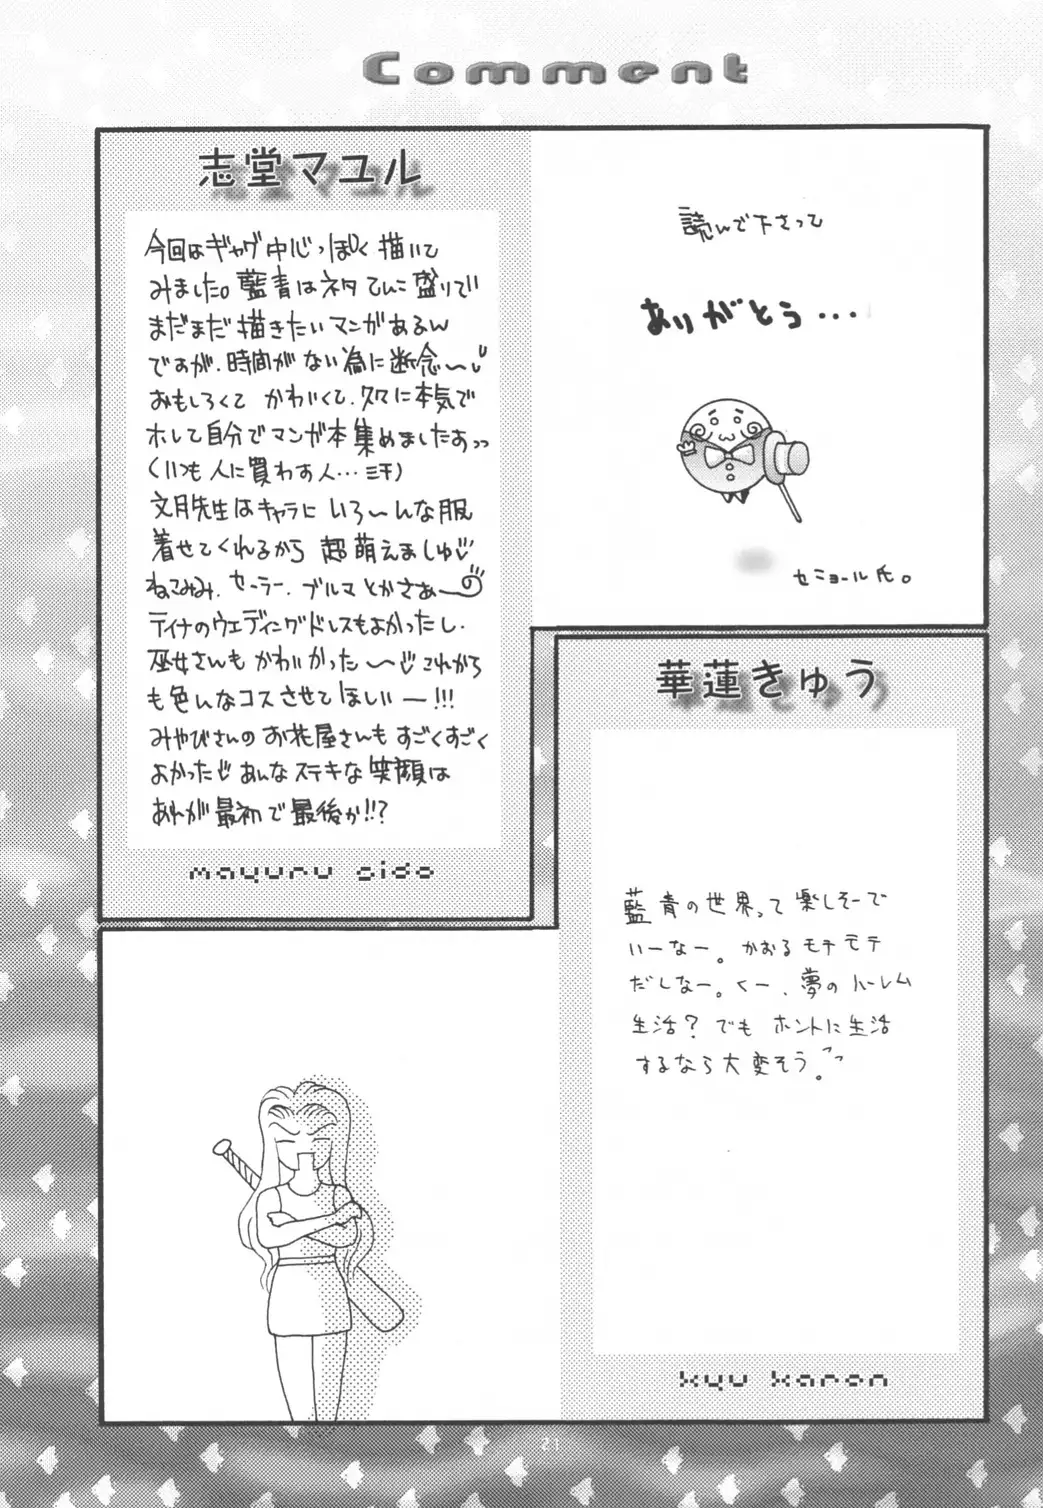 Comment
志堂マユル
今回はギャグ中心っぽく描いて
みました。藍青はネタてんこ盛りでい
まだまだ描きたいマンガがあるん
ですが、時間がない為に断念〜
おもしろくて かわいくて、久々に本気で
ホレて自分でマンガ本集めましたあっっ
(いつも人に買わす人…ミ干)
文月先生はキャラに いろ〜んな服
着せてくれるから 超萌えましゅ
ねこみみ、セーラー、ブルマとかさぁ〜
ティナのウエディングドレスもよかったし、
巫女さんも かわいかった〜 これから
も色んなコスさせて ほしいー!!!
みやびさんの お花屋さんも すごくすごく
よかった あんな ステキな笑顔は
あれが最初で最後か!!?
mayuru sido
読んで下さって
ありがとう...
セニョール氏。
華蓮きゅう
藍青の世界って楽しそーで
いーなー。かおるモテモテ
だしなー。くー、夢のハーレム
生活? でも ホントに生活
するなら大変そう。
kyu karen
21